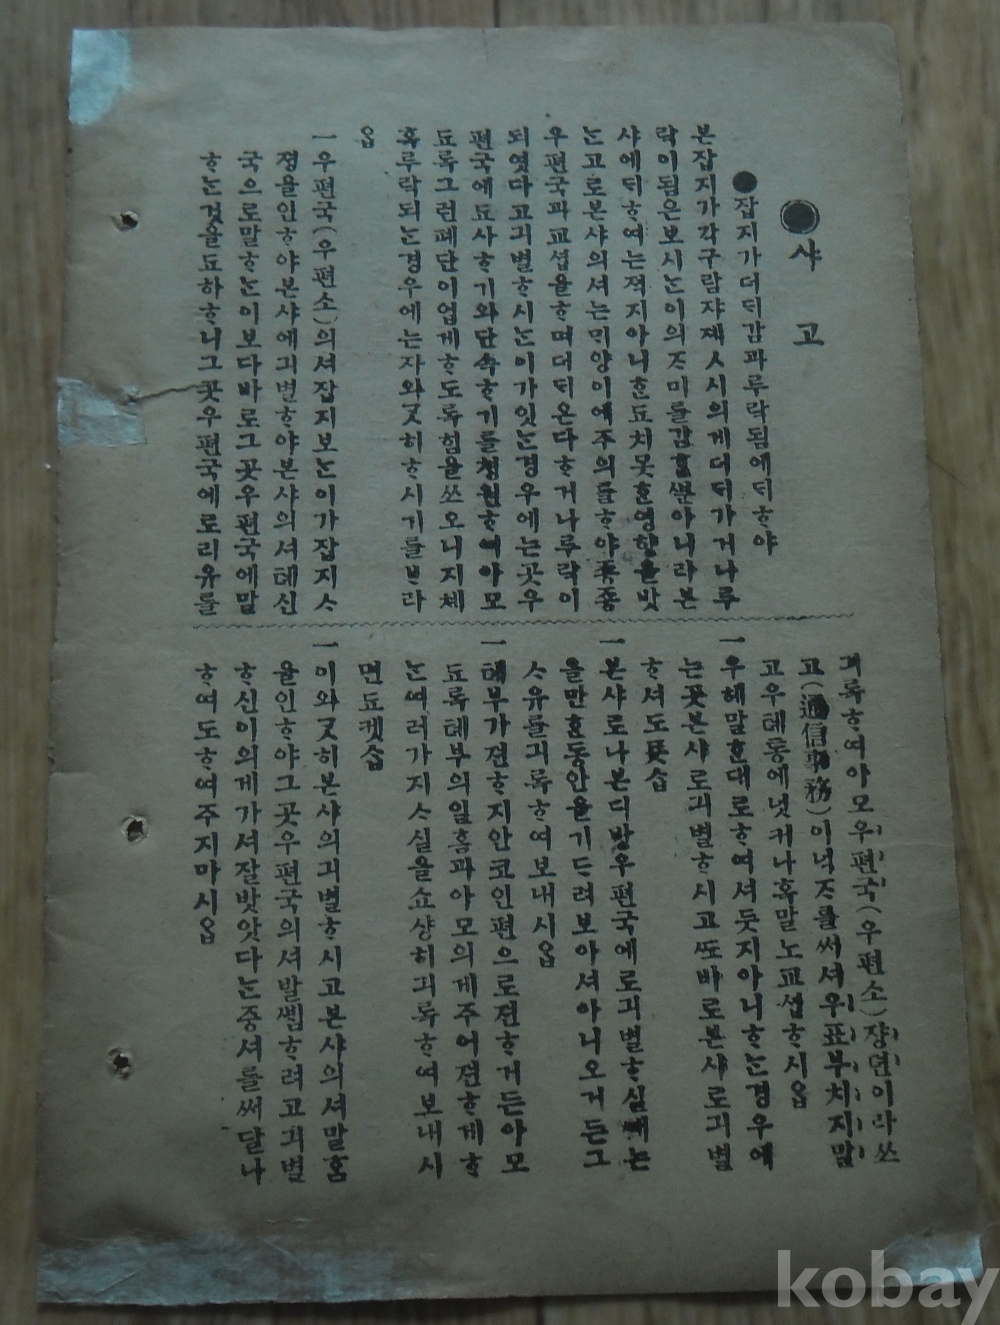 샤 고
●잡지가더ᄃᆡ감과루락됨에ᄃᆡᄒᆞ야
본잡지가각구람쟈제ㅅ시의게더ᄃᆡ가거나루
락이됨은보시ᄂᆞᆫ이의ᄌᆞ미를감ᄒᆞᆯᄲᅮᆫ아니라본
샤에ᄃᆡᄒᆞ여는젹지아니ᄒᆞᆫ됴치못ᄒᆞᆫ영향을밧
ᄂᆞᆫ고로본샤의셔는ᄆᆡ양이에주의를ᄒᆞ야죵죵
우편국과교셥을ᄒᆞ며더ᄃᆡ온다ᄒᆞ거나루락이
되엿다고긔별ᄒᆞ시ᄂᆞᆫ이가잇ᄂᆞᆫ경우에는곳우
편국에됴사ᄒᆞ기와단속ᄒᆞ기를청원ᄒᆞ여아모
됴록그런폐단이업게ᄒᆞ도록힘을쓰오니지체
혹루락되ᄂᆞᆫ경우에는자와ᄀᆞᆺ히ᄒᆞ시기를ᄇᆞ라
옵
一우편국(우편소)의셔잡지보ᄂᆞᆫ이가잡지ㅅ
졍을인ᄒᆞ야본샤에긔별ᄒᆞ야본샤의셔톄신
국으로말ᄒᆞᄂᆞᆫ이보다바로그곳우편국에말
ᄒᆞᄂᆞᆫ것을됴하ᄒᆞ니그곳우편국에로리유를
긔록ᄒᆞ여아모우편국(우편소)쟝뎐이라쓰
고(通信事務)이넉ᄌᆞ를써셔우표부치지말
고우톄통에넛커나혹말노교셥ᄒᆞ시옵
一우헤말ᄒᆞᆫ대로ᄒᆞ여셔듯지아니ᄒᆞᄂᆞᆫ경우에
는곳본샤로긔별ᄒᆞ시고ᄯᅩ바로본샤로긔별
ᄒᆞ셔도됴습
一본샤로나본디방우편국에로긔별ᄒᆞ실ᄯᅢ는
을만ᄒᆞᆫ동안을기ᄃᆞ려보아셔아니오거든그
ᄉᆞ유를긔록ᄒᆞ여보내시옵
一톄부가젼ᄒᆞ지안코인편으로젼ᄒᆞ거든아모
됴록톄부의일홈과아모의게주어젼ᄒᆞ게ᄒᆞ
ᄂᆞᆫ여러가지ᄉᆞ실을쇼샹히긔록ᄒᆞ여보내시
면됴켓습
一이와ᄀᆞᆺ히본샤의긔별ᄒᆞ시고본샤의셔말ᄒᆞᆷ
을인ᄒᆞ야그곳우편국의셔발뼘ᄒᆞ려고긔별
ᄒᆞ신이의게가셔잘밧앗다ᄂᆞᆫ증셔를써달나
ᄒᆞ여도ᄒᆞ여주지마시옵
kobay